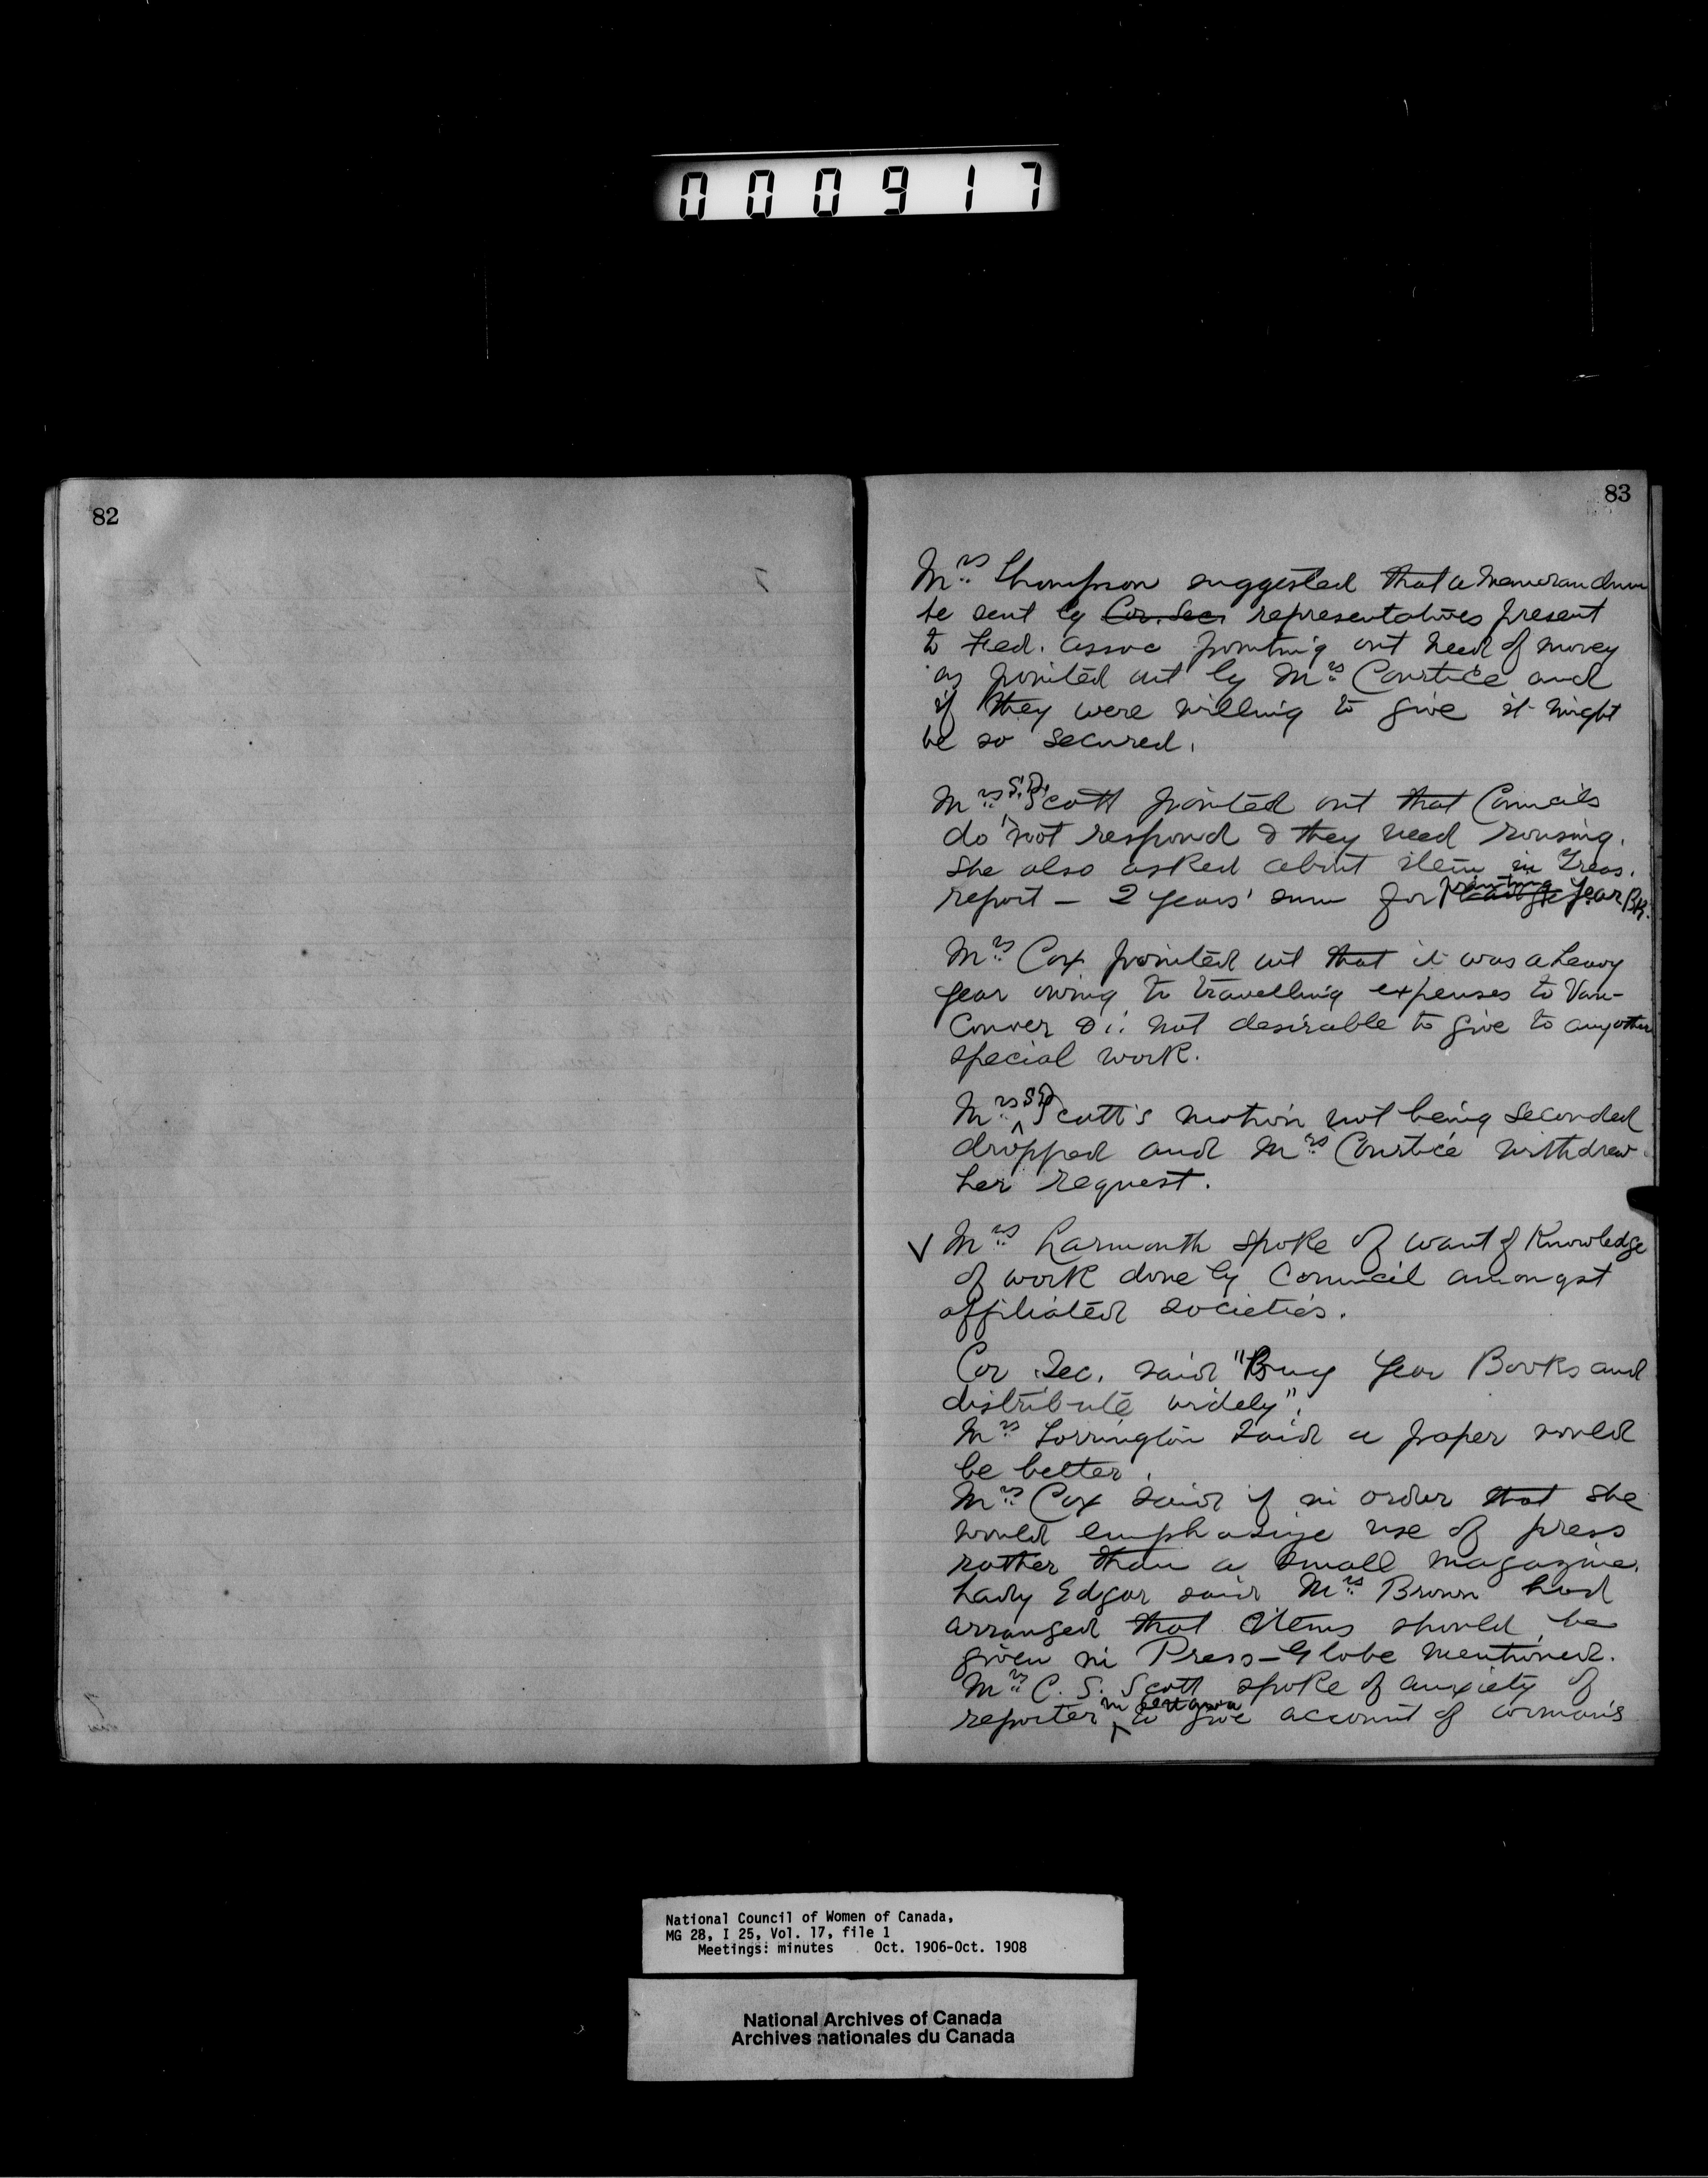 000917
82
83
Mrs Thompson suggested that a memorandum
be sent by Cor. Sec. representatives present
to Fed. Assoc pointing out need of money
as pointed out by Mrs Courtice and
if they were willing to give it might
be so secured.
Mrs S.D. Scott pointed out that Councils
do not respond & they need rousing.
She also asked about item in Treas.
report - 2 years' sum for printing Year Bk.
Mrs Cox pointed out that it was a heavy
year owing to travelling expenses to Van-
couver & ∴ not desirable to give to any other
special work.
Mrs SD Scott's motion not being seconded
dropped and Mrs Courtice withdrew
her request.
✓ Mrs Larmonth spoke of want of knowledge
of work done by Council amongst
affiliated societies.
Cor Sec. said "Buy Year Books and
distribute widely".
Mrs Torrington said a paper would
be better.
Mrs Cox said if in order that she
would emphasize use of press
rather than a small magazine.
Lady Edgar said Mrs Brown had
arranged that items should be
given in Press - Globe mentioned.
Mrs C. S. Scott spoke of anxiety of
reporter in Ottawa to give account of woman's
National Council of Women of Canada,
MG 28, I 25, Vol. 17, file 1
Meetings: minutes Oct. 1906-Oct. 1908
National Archives of Canada
Archives nationales du Canada